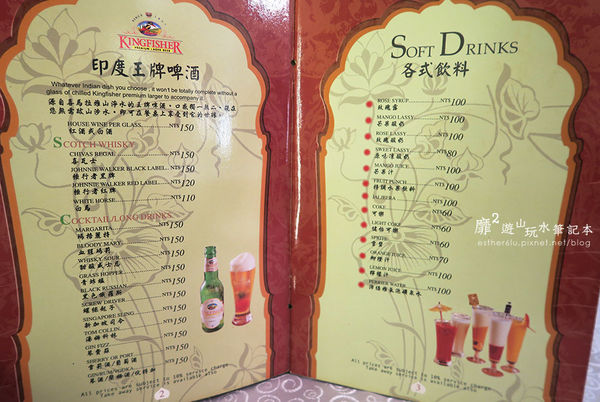 KINGFISHER
PREMIUM LAGER BEER
印度王牌啤酒
Whatever Indian dish you choose, it won't be totally complete without a
glass of chilled Kingfisher premium larger to accompany it.
HOUSE WINE PER GLASS NT$150
紅酒或白酒
SCOTCH WHISKY
CHIVAS REGAL NT$150
喜瓦士
JOHNNIE WALKER BLACK LABEL NT$150
極行者黑牌
JOHNNIE WALKER RED LABEL NT$120
極行者紅牌
WHITE HORSE NT$110
白馬
COCKTAIL/LONG DRINKS
MARGARITA NT$150
瑪格麗特
BLOODY MARY NT$150
血腥瑪莉
WHISKY SOUR NT$150
甜酸威士忌
GRASS HOPPER NT$150
青蚱蜢
BLACK RUSSIAN NT$150
黑色俄羅斯
SCREW DRIVER NT$150
螺絲起子
SINGAPORE SLING NT$150
新加坡司令
TOM COLLIN NT$150
湯姆科林
GIN FIZZ NT$150
琴費茲
SHERRY OR PORT NT$150
雪莉酒/葡萄酒
GIN/RUM/VODKA NT$150
琴酒/蘭姆酒/伏特加
All prices are subject to 10% service charge
Take away service is available also
2
SOFT DRINKS
各式飲料
ROSE SYRUP NT$100
玫瑰露
MANGO LASSY NT$100
芒果酸奶
ROSE LASSY NT$100
玫瑰酸奶
SWEET LASSY NT$80
原味薄酸奶
MANGO JUICE NT$100
芒果汁
FRUIT PUNCH NT$100
特調水果飲料
JALJEERA NT$100
COKE NT$60
可樂
LIGHT COKE NT$60
健怡可樂
SPRITE NT$60
雪碧
ORANGE JUICE NT$70
柳橙汁
LEMON JUICE NT$100
檸檬汁
PERRIER WATER NT$100
All prices are subject to 10% service charge
Take away service is available also
3
靡²遊山玩水筆記本
esther6lu.pixnet.net/blog